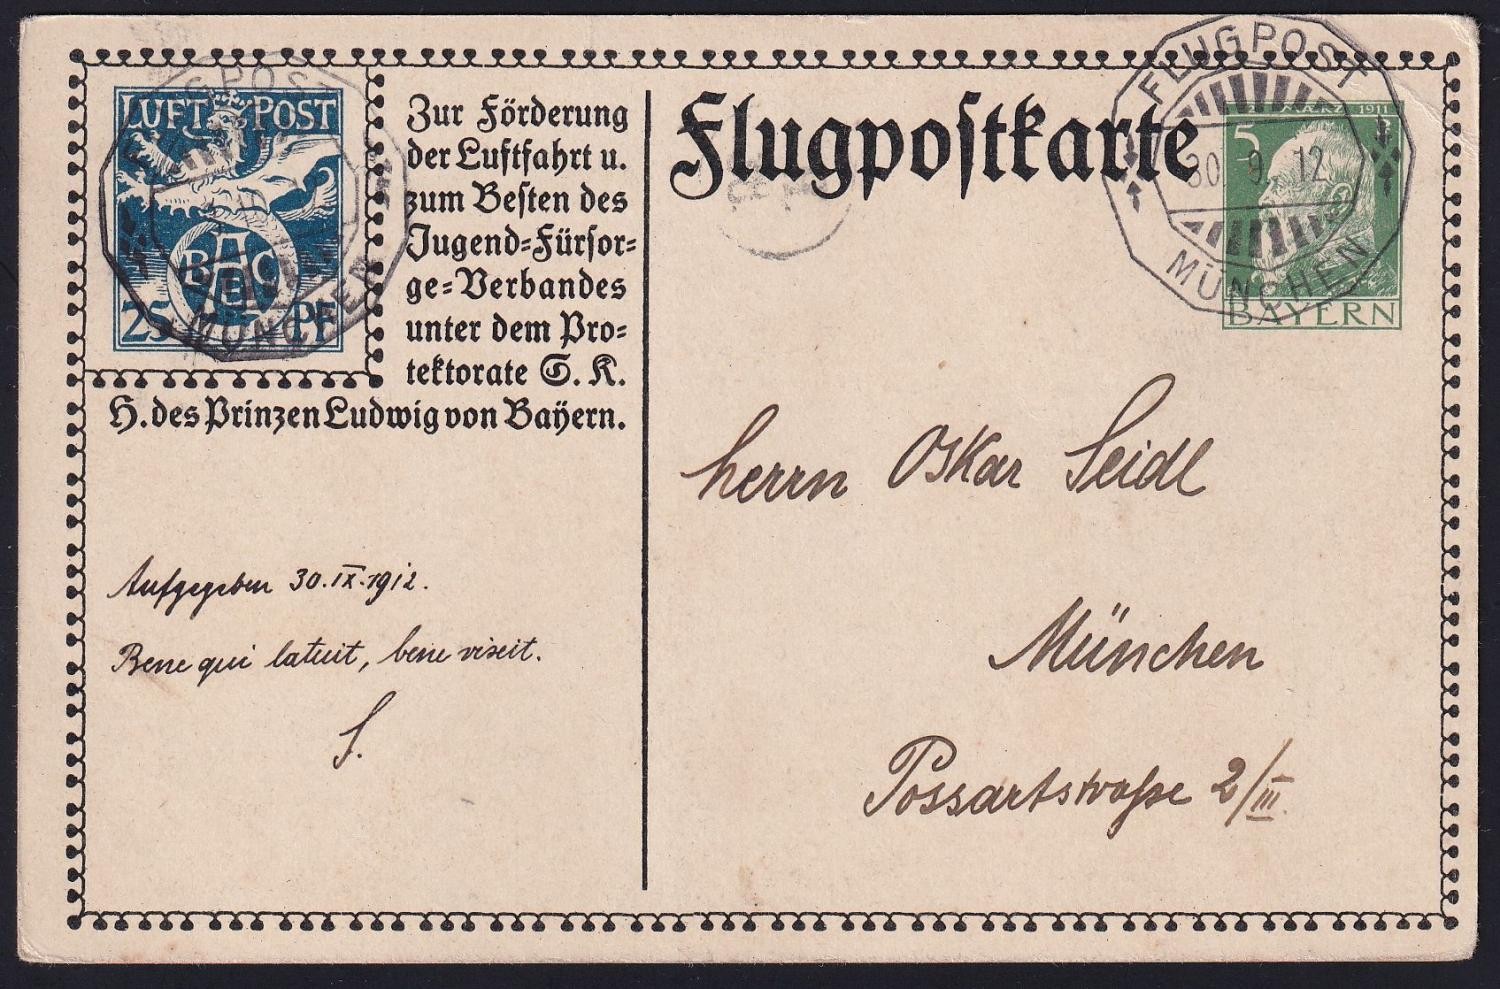 LUFT POST
BAEC
25 PF
FLUGPOST
MÜNCHEN
Zur Förderung
der Luftfahrt u.
zum Besten des
Jugend=Fürsor=
ge=Verbandes
unter dem Pro=
tektorate S. K.
H. des Prinzen Ludwig von Bayern.
Aufgegeben 30.IX.1912.
Bene qui latuit, bene vixit.
S.
Flugpostkarte
FLUGPOST
30 9 12
MÜNCHEN
5
1911
BAYERN
Herrn Oskar Seidl
München
Possartstraße 2/III.